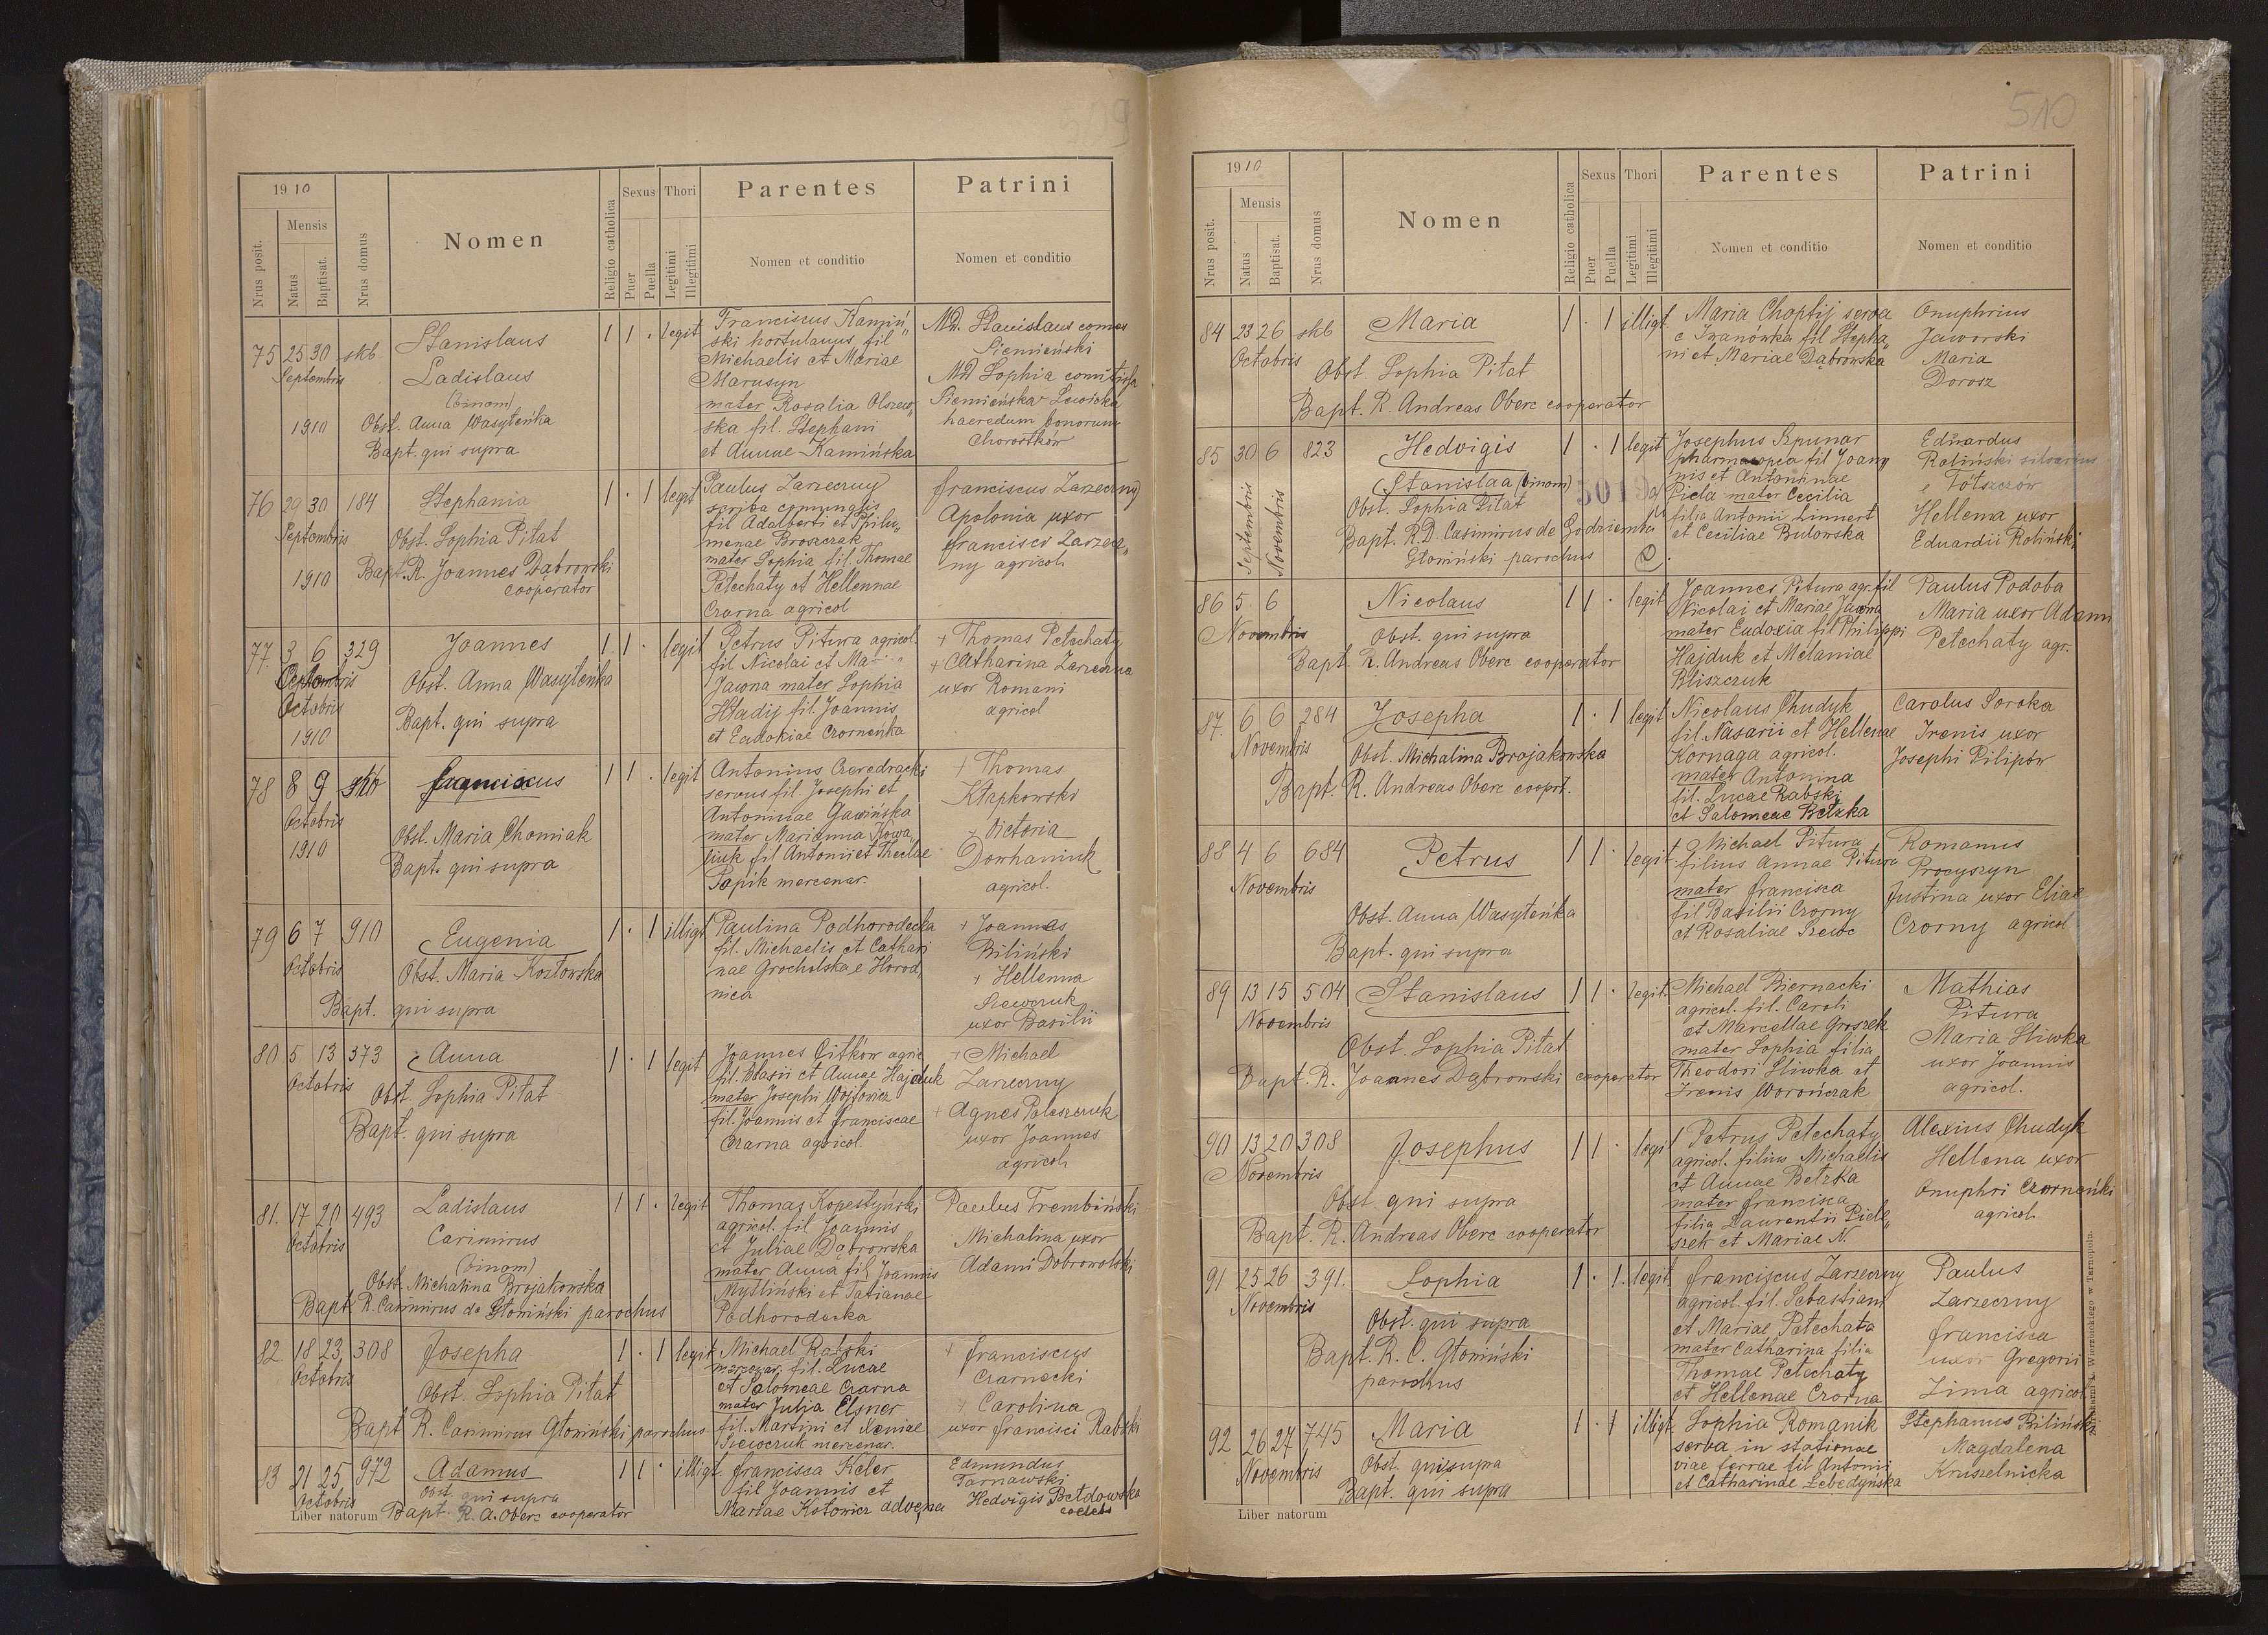 509
1910
Nrus posit.
Mensis
Natus
Baptisat.
Nrus domus
Nomen
Religio catholica
Sexus
Puer
Puella
Thori
Legitimi
Illegitimi
Parentes
Nomen et conditio
Patrini
Nomen et conditio
75 25 30 skb Stanislaus 1 1 · legit
Septembris Ladislaus
(binom)
1910 Obst. Anna Wasyleńka
Bapt. qui supra
Franciscus Kamiń„
ski hortulanus fil
Michaelis et Mariae
Marusyn
mater Rosalia Olszew„
ska fil. Stephani
et Annae Kamińska
MD. Stanislaus comes
Siemieński
MD Sophia comitissa
Siemieńska Lewicka
haeredum bonorum
Chorostków
76 29 30 184 Stephania 1 · 1 legit
Septembris Obst. Sophia Pitat
1910 Bapt. R. Joannes Dąbrowski
cooperator
Paulus Zarzeczny
scriba communalis
fil Adalberti et Philo„
menae Broszczak
mater Sophia fil. Thomae
Petechaty et Hellennae
Czorna agricol
Franciscus Zarzeczny
Apolonia uxor
Francisci Zarzecz„
ny agricol.
77 3 6 329 Joannes 1 1 · legit
Septembris
Octobris Obst. Anna Wasyleńka
1910 Bapt. qui supra
Petrus Pitura agricol.
fil Nicolai et Ma
Jawna mater Sophia
Hładij fil. Joannis
et Eudokiae Czorneńka
+ Thomas Petechaty
+ Catharina Zarzeczna
uxor Romani
agricol
78 8 9 skb Franciscus 1 1 · legit
Octobris
1910 Obst. Maria Chomiak
Bapt. qui supra
Antonius Czeredracki
servus fil. Josephi et
Antoninae Gawińska
mater Marianna Kowa„
liuk fil Antonii et Theclae
Sapik mercenar.
+ Thomas
Kłapkowski
+ Victoria
Dowhaniuk
agricol.
79 6 7 910 Eugenia 1 · 1 illigt
Octobris Obst. Maria Kozłowska
Bapt. qui supra
Paulina Podhorodecka
fil. Michaelis et Cathari
nae Grocholska e Horod„
nica
+ Joannes
Biliński
+ Hellenna
Szewczuk
uxor Basilii
80 5 13 373 Anna 1 · 1 legit
Octobris Obst. Sophia Pitat
Bapt. qui supra
Joannes Citków agric
fil. Blasii et Annae Hajduk
mater Josephi Wojtowicz
fil. Joannis et Franciscae
Czarna agricol.
+ Michael
Zarzeczny
+ Agnes Poleszczuk
uxor Joannes
agricol.
81. 17 20 493 Ladislaus 1 1 · legit
Octobris Casimirus
(binom)
Obst. Michalina Brojakowska
Bapt. R. Casimirus de Głomiński parochus
Thomas Kopestyński
agricol. fil Joannis
et Juliae Dąbrowska
mater Anna fil Joannis
Myśliński et Tatianae
Podhorodecka
Paulus Trembiński
Michalina uxor
Adami Dobrowolski
82 18 23 308 Josepha 1 · 1 legit
Octobris
Obst. Sophia Pitat
Bapt R. Casimirus Głomiński parochus
Michael Rabski
mercenar. fil. Lucae
et Salomeae Czarna
mater Julia Elsner
fil. Martini et Xeniae
Szewczuk mercenar.
+ Franciscus
Czarnecki
+ Carolina
uxor Francisci Rabski
83 21 25 972 Adamus 1 1 · illigt.
Octobris Obst qui supra
Bapt. R. A. Oberc cooperator
Francisca Keler
fil Joannis et
Mariae Kotowicz advena
Edmundus
Tarnawski
Hedvigis Bełdowska
coelebs
Liber natorum
510
1910
Nrus posit.
Mensis
Natus
Baptisat.
Nrus domus
Nomen
Religio catholica
Sexus
Puer
Puella
Thori
Legitimi
Illegitimi
Parentes
Nomen et conditio
Patrini
Nomen et conditio
84 23 26 skb Maria 1 · 1 illigt.
Octobris Obst. Sophia Pitat
Bapt. R. Andreas Oberc cooperator
Maria Choptij serva
e Iwanówka fil Stepha„
ni et Mariae Dąbrowska
Onuphrius
Jaworski
Maria
Dorosz
85 30 6 823 Hedvigis 1 · 1 legit
Septembris Novembris
Stanislaa (binom)
Obst. Sophia Pitat
Bapt. R.D. Casimirus de Godziemba
Głomiński parochus
Josephus Szpunar
pharmacopea fil Joan„
nis et Antoninae
Piela mater Cecilia
filia Antonii Linnert
et Ceciliae Butowska
Eduardus
Roliński silvarius
e Tołszczów
Hellena uxor
Eduardii Roliński
86 5 6 Nicolaus 1 1 · legit
Novembris Obst. qui supra
Bapt. R. Andreas Oberc cooperator
Joannes Pitura agr. fil
Nicolai et Mariae Jawna
mater Eudoxia fil Philippi
Hajduk et Melaniae
Bliszczuk
Paulus Podoba
Maria uxor Adami
Petechaty agr.
87. 6 6 284 Josepha 1 · 1 legit
Novembris Obst. Michalina Brojakowska
Bapt. R. Andreas Oberc cooprt.
Nicolaus Chudyk
fil. Nasarii et Hellenae
Kornaga agricol.
mater Antonina
fil. Lucae Rabski
et Salomeae Betzka
Carolus Soroka
Irenis uxor
Josephi Pilipów
88 4 6 684 Petrus 1 1 · legit
Novembris
Obst. Anna Wasyleńka
Bapt. qui supra
Michael Pitura
filius Annae Pitura
mater Francisca
fil Basilii Czorny
et Rosaliae Szewc
Romanus
Procyszyn
Justina uxor Eliae
Czorny agricol
89 13 15 504 Stanislaus 1 1 · legit.
Novembris
Obst. Sophia Pitat
Bapt. R. Joannes Dąbrowski cooperator
Michael Biernacki
agricol. fil. Caroli
et Marcellae Groszek
mater Sophia filia
Theodori Sliwka et
Irenis Worończak
Mathias
Pitura
Maria Sliwka
uxor Joannis
agricol.
90 13 20 308 Josephus 1 1 · legit
Novembris
Obst qui supra
Bapt. R. Andreas Oberc cooperator
Petrus Petechaty
agricol. filius Michaelis
et Annae Betzka
mater Francisca
filia Laurentii Piele„
szek et Mariae N.
Alexius Chudyk
Hellena uxor
Onuphri Czorneńki
agricol.
91 25 26 391. Sophia 1 · 1. legit
Novembris
Obst. qui supra
Bapt. R. C. Głomiński
parochus
Franciscus Zarzeczny
agricol. fil. Sebastiani
et Mariae Petechata
mater Catharina filia
Thomae Petechaty
et Hellenae Czorna
Paulus
Zarzeczny
Francisca
uxor Gregorii
Zima agricol
92 26 27 745 Maria 1 · 1 illigt.
Novembris Obst. qui supra
Bapt. qui supra
Sophia Romanik
serva in stationae
viae ferrae fil Antoni
et Catharinae Łebedyńska
Stephanus Biliński
Magdalena
Kruszelnicka
Liber natorum
Drukarni L. Wierzbickiego w Tarnopolu.